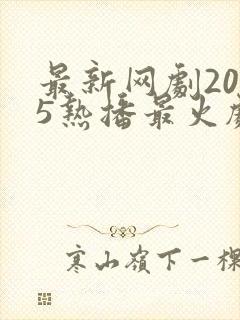 最新网劇20
5热播最火
寒山嶺下一棵